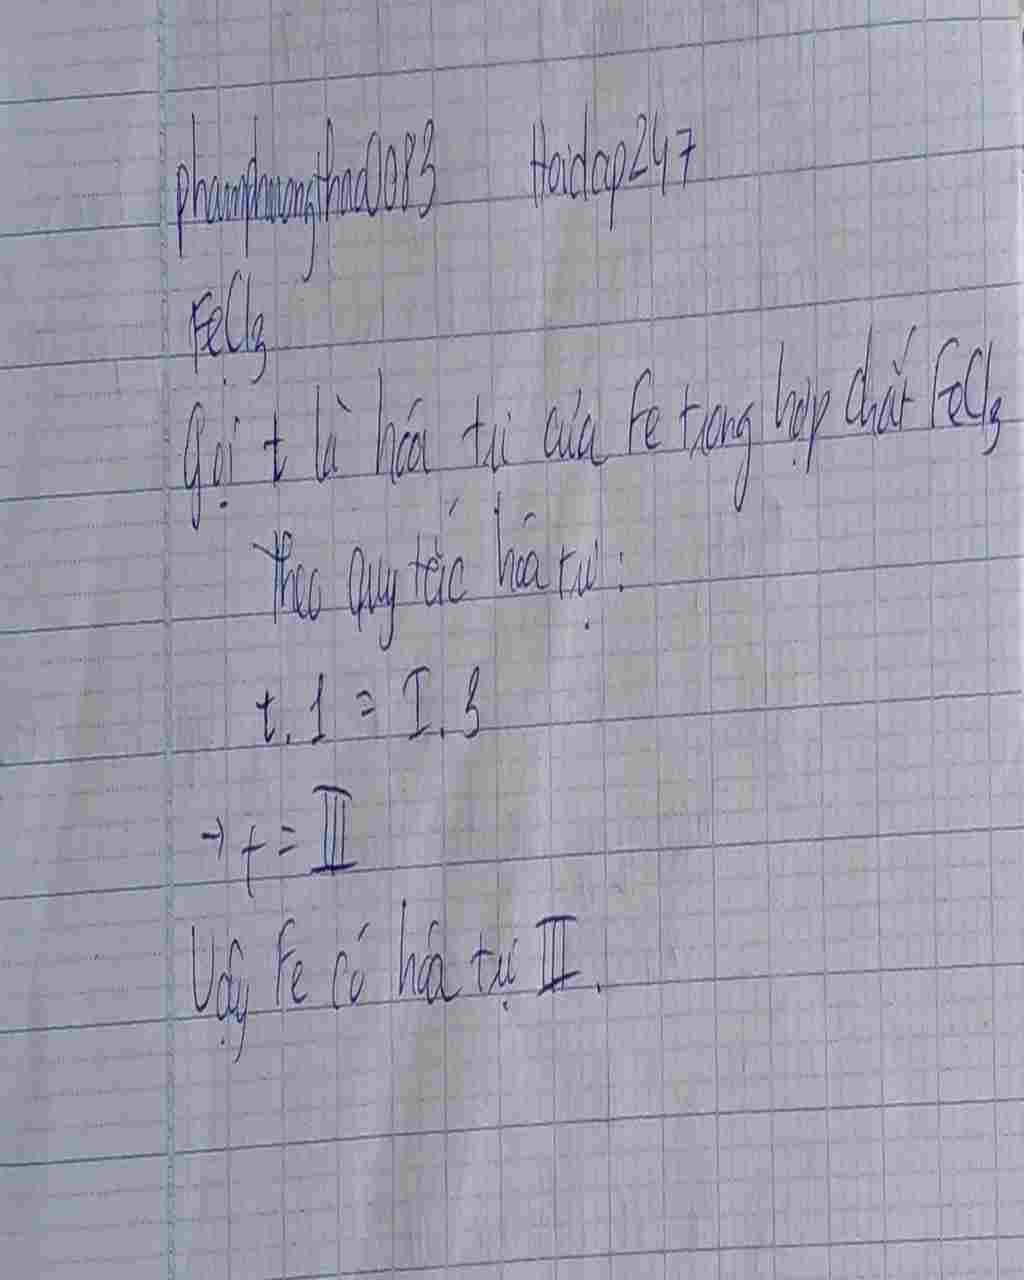 phamphuongthao0083 Hoidap247
FeCl3
Gọi t là hóa trị của Fe trong hợp chất FeCl3
Theo quy tắc hóa trị:
t.1 = I.3
→ t = III
Vậy Fe có hóa trị III.